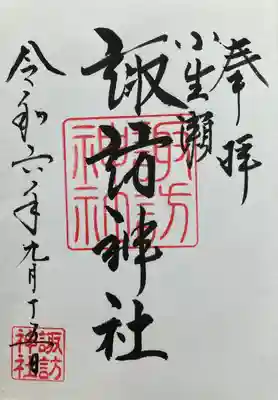 奉拝
小生瀬
諏訪神社
令和六年九月十五日
諏訪神社
諏訪神社